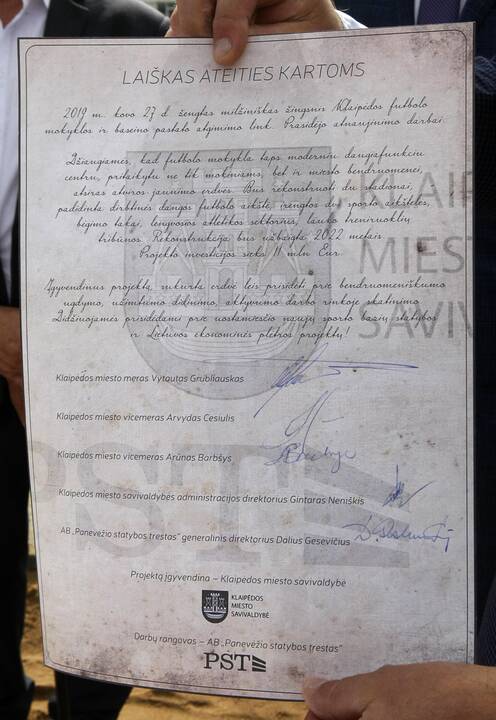 LAIŠKAS ATEITIES KARTOMS
2019 m. kovo 27 d. žengtas milžiniškas žingsnis Klaipėdos futbolo
mokyklos ir baseino pastato atgimimo link. Prasidėjo atnaujinimo darbai.
Džiaugiamės, kad futbolo mokykla taps moderniu daugiafunkciu
centru, pritaikytu ne tik mokiniams, bet ir miesto bendruomenei,
atsiras atviros jaunimo erdvės. Bus rekonstruoti du stadionai,
padidinta dirbtinės dangos futbolo aikštė, įrengtos dvi sporto aikštelės,
bėgimo takai, lengvosios atletikos sektorius, lauko treniruoklių,
tribūnos. Rekonstrukcija bus užbaigta 2022 metais.
Projekto investicijos sieks 11 mln Eur.
Įgyvendinus projektą, sukurta erdvė leis prisidėti prie bendruomeniškumo
ugdymo, užimtumo didinimo, aktyvumo darbo rinkoje skatinimo.
Didžiuojamės prisidėdami prie uostamiesčio naujų sporto bazių statybos
ir Lietuvos ekonominės plėtros projektų!
Klaipėdos miesto meras Vytautas Grubliauskas
Klaipėdos miesto vicemeras Arvydas Cesiulis
Klaipėdos miesto vicemeras Arūnas Barbšys
Klaipėdos miesto savivaldybės administracijos direktorius Gintaras Neniškis
AB „Panevėžio statybos trestas" generalinis direktorius Dalius Gesevičius
Projektą įgyvendina – Klaipėdos miesto savivaldybė
KLAIPĖDOS
MIESTO
SAVIVALDYBĖ
Darbų rangovas – AB „Panevėžio statybos trestas"
PST